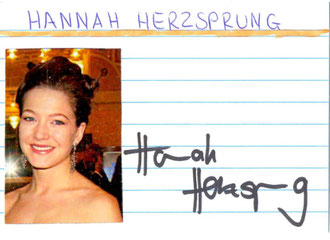 HANNAH HERZSPRUNG
Hannah
Herzsprung